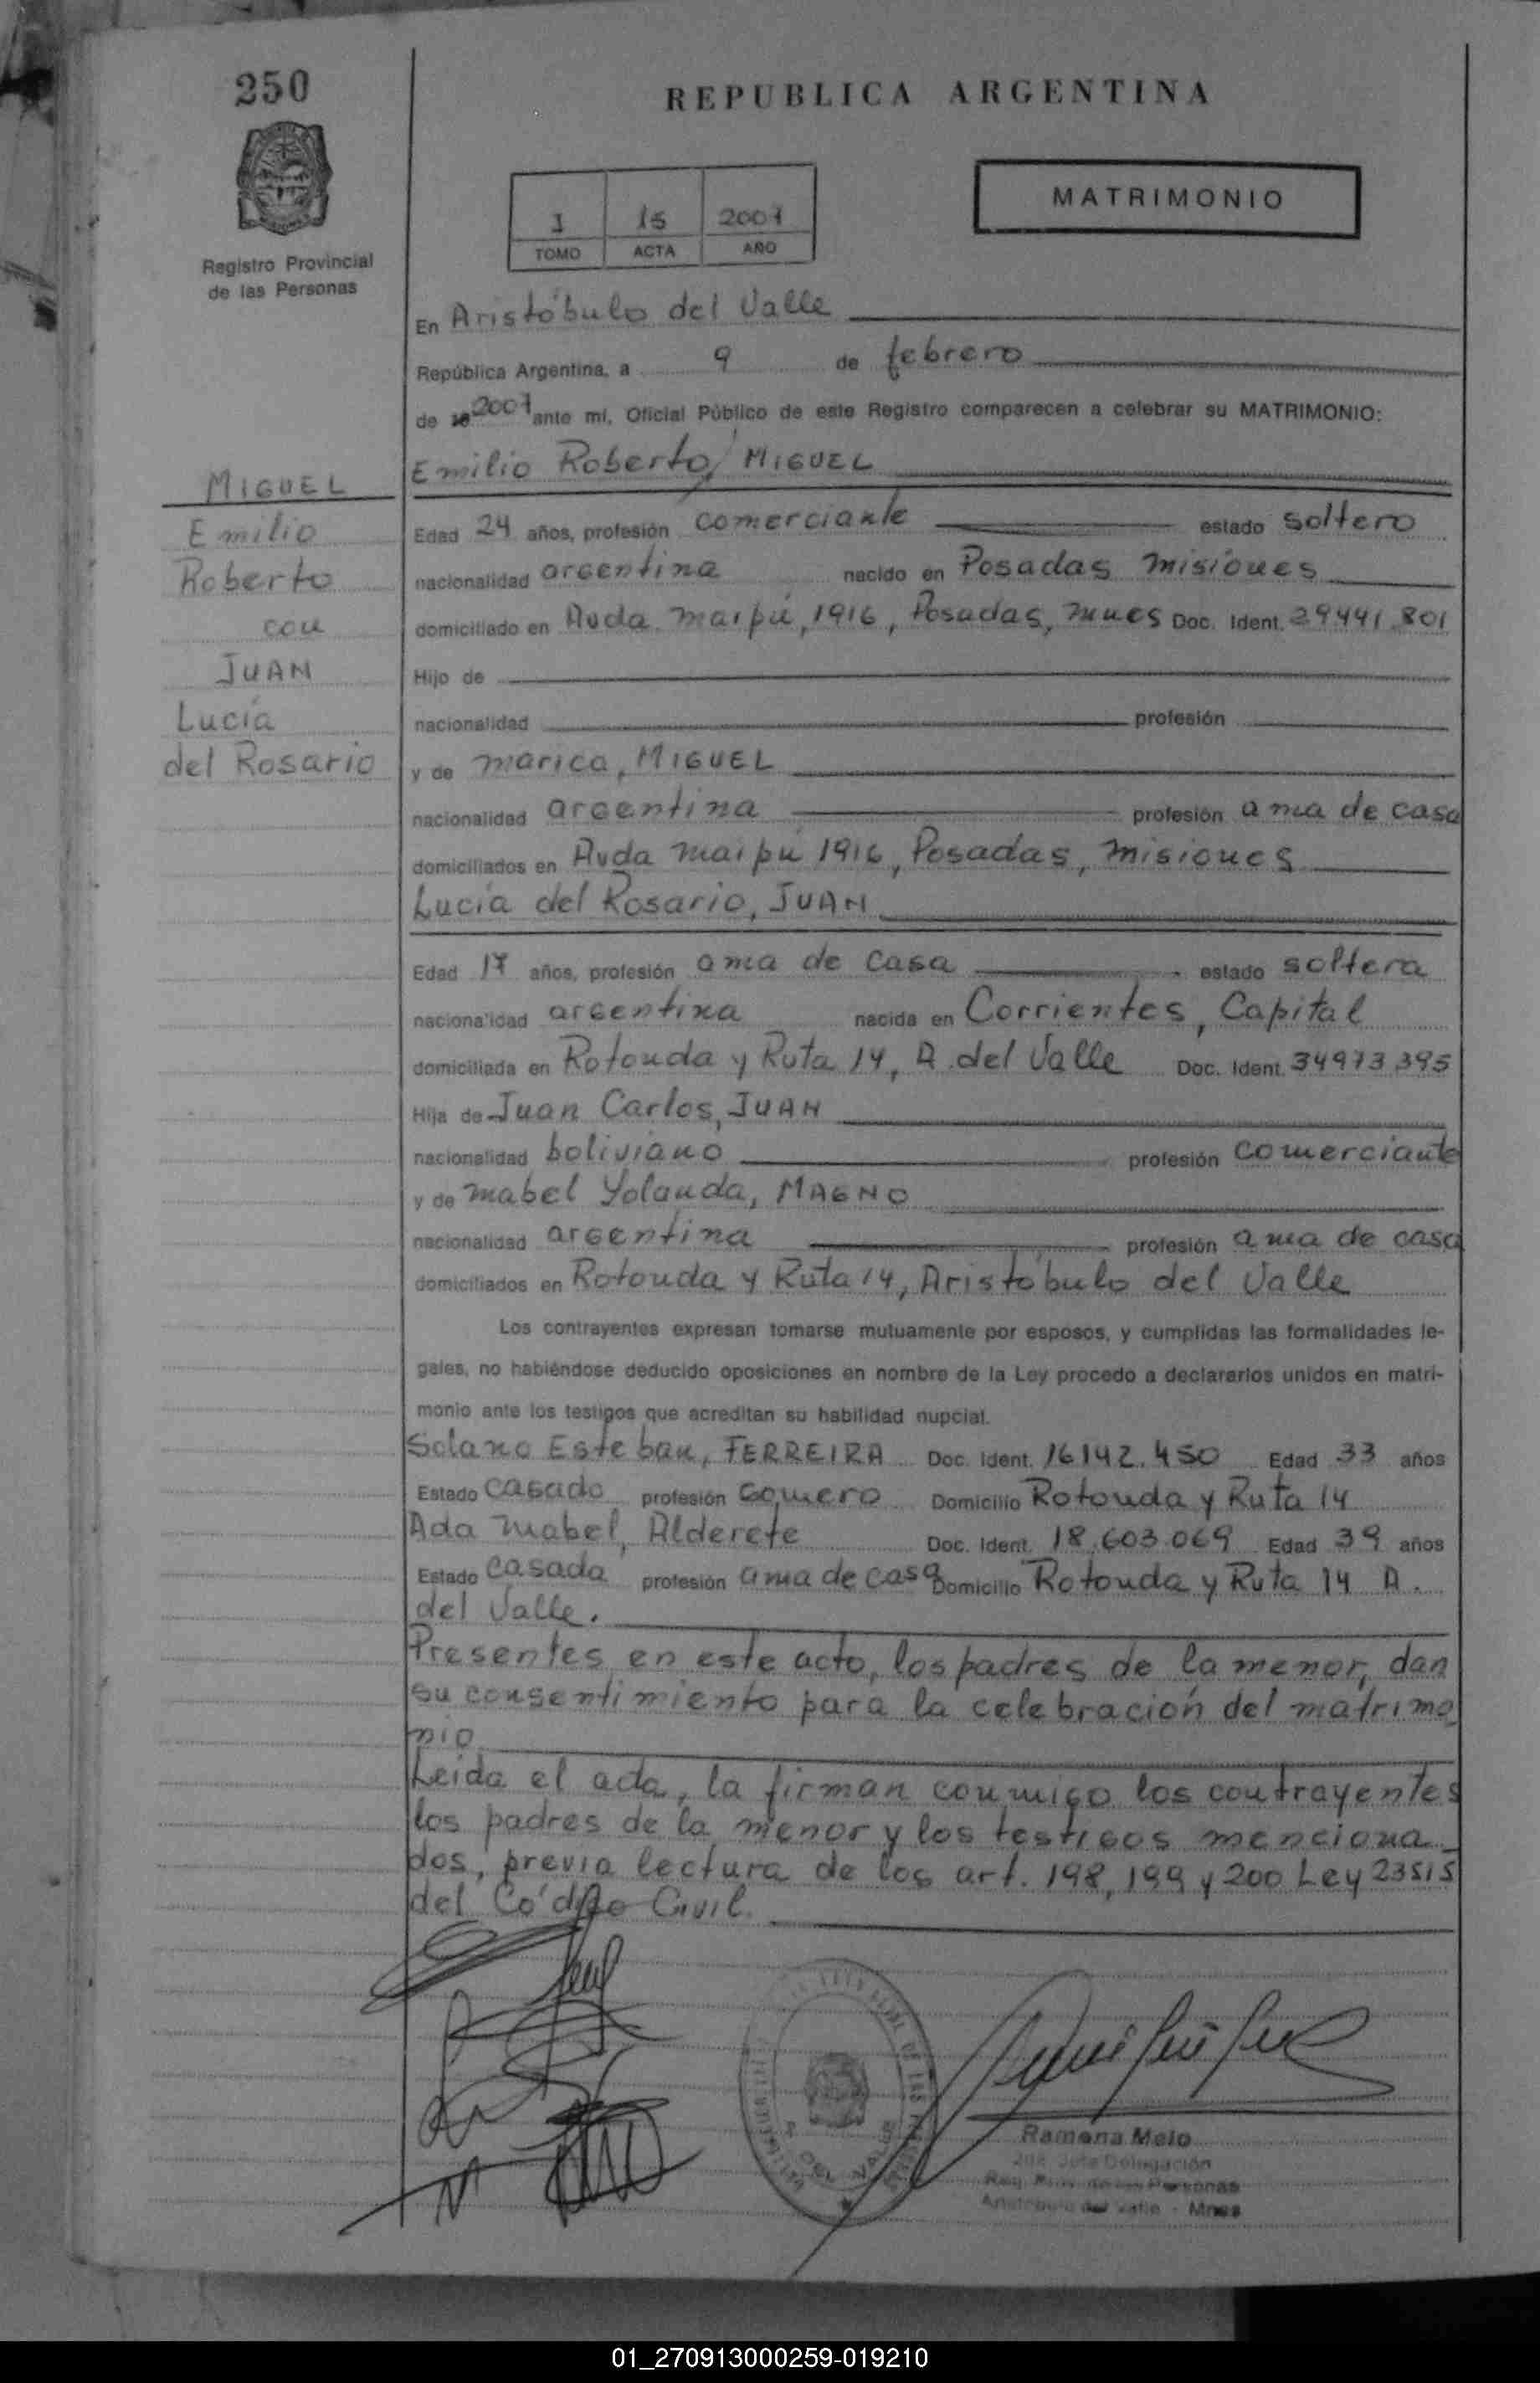 250
REPUBLICA ARGENTINA
MATRIMONIO
1 15 2007
TOMO ACTA AÑO
Registro Provincial
de las Personas
En Aristóbulo del Valle
República Argentina, a 9 de febrero
de 2007 ante mí, Oficial Público de este Registro comparecen a celebrar su MATRIMONIO:
Emilio Roberto, MIGUEL
MIGUEL
Emilio
Roberto
con
JUAN
Lucía
del Rosario
Edad 24 años, profesión comerciante estado soltero
nacionalidad argentina nacido en Posadas Misiones
domiciliado en Avda. Maipú, 1916, Posadas, Mnes Doc. Ident. 29441.801
Hijo de
nacionalidad profesión
y de Marica, MIGUEL
nacionalidad argentina profesión ama de casa
domiciliados en Avda Maipú 1916, Posadas, Misiones
Lucía del Rosario, JUAN
Edad 17 años, profesión ama de casa estado soltera
nacionalidad argentina nacida en Corrientes, Capital
domiciliada en Rotonda y Ruta 14, A. del Valle Doc. Ident. 34973395
Hija de Juan Carlos, JUAN
nacionalidad boliviano profesión comerciante
y de Mabel Yolanda, MAGNO
nacionalidad argentina profesión ama de casa
domiciliados en Rotonda y Ruta 14, Aristóbulo del Valle
Los contrayentes expresan tomarse mutuamente por esposos, y cumplidas las formalidades le-
gales, no habiéndose deducido oposiciones en nombre de la Ley procedo a declararlos unidos en matri-
monio ante los testigos que acreditan su habilidad nupcial.
Solano Esteban, FERREIRA Doc. Ident. 16142.450 Edad 33 años
Estado casado profesión gomero Domicilio Rotonda y Ruta 14
Ada Mabel, Alderete Doc. Ident. 18.603.069 Edad 39 años
Estado casada profesión ama de casa Domicilio Rotonda y Ruta 14 A.
del Valle.
Presentes en este acto, los padres de la menor, dan
su consentimiento para la celebración del matrimo
nio
Leida el acta, la firman conmigo los contrayentes
los padres de la menor y los testigos menciona
dos, previa lectura de los art. 198, 199 y 200 Ley 23515
del Código Civil.
Ramona Melo
Jefe Delegación
Reg. de las Personas
Aristóbulo del Valle - Mnes
01_270913000259-019210